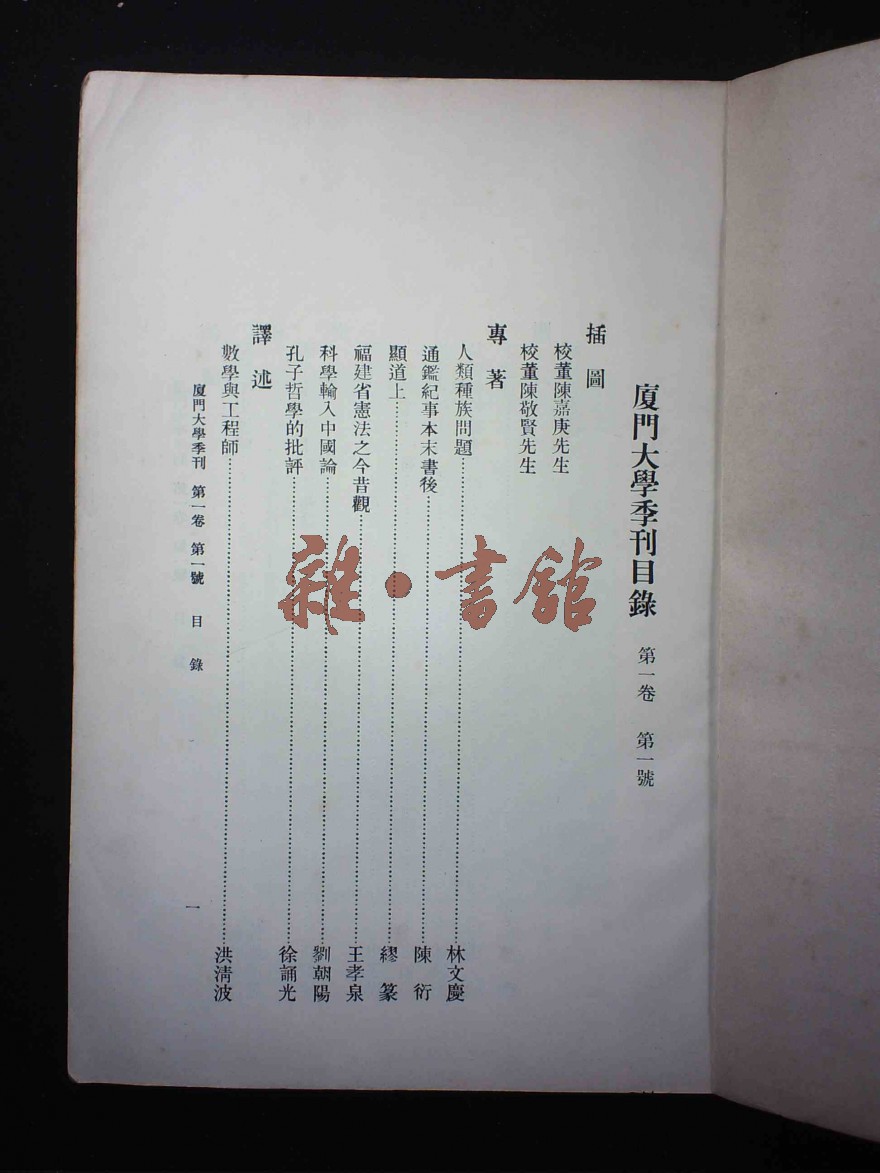 廈門大學季刊目錄 第一卷 第一號
插圖
校董陳嘉庚先生
校董陳敬賢先生
專著
人類種族問題……林文慶
通鑑紀事本末書後……陳衍
顯道上……繆篆
福建省憲法之今昔觀……王孝泉
科學輸入中國論……劉朝陽
孔子哲學的批評……徐誦光
譯述
數學與工程師……洪清波
廈門大學季刊 第一卷 第一號 目錄 一
雜·書館